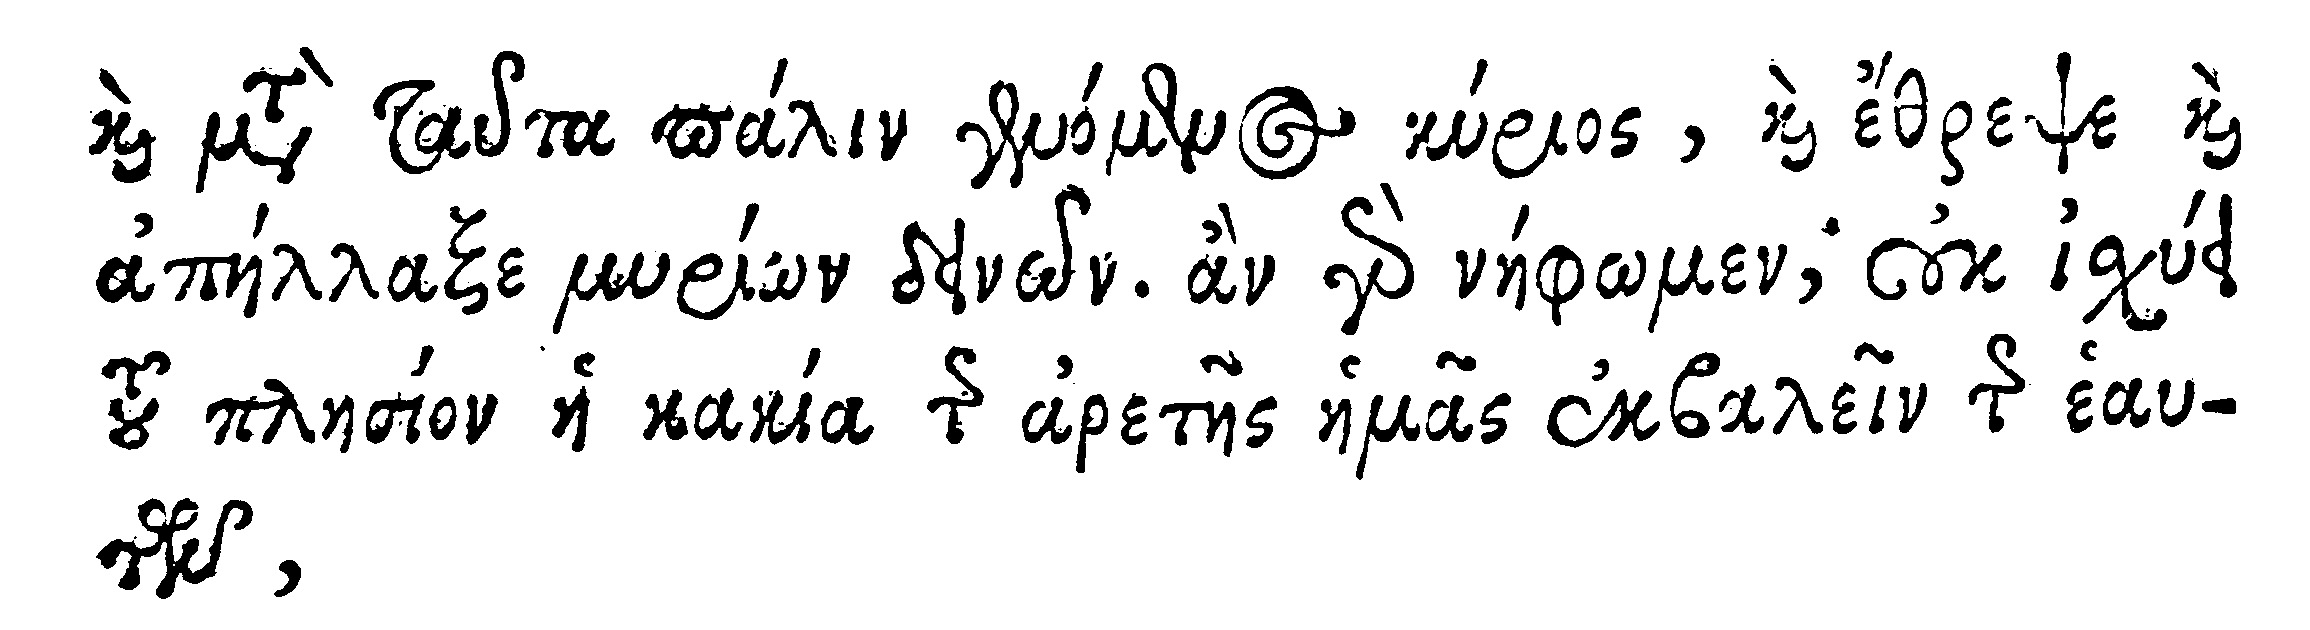 καὶ μετὰ ταῦτα πάλιν γενόμενος κύριος, καὶ ἔθρεψε καὶ
ἀπήλλαξε μυρίων δεινῶν. ἂν γὰρ νήφωμεν, οὐκ ἰσχύει
τοῦ πλησίον ἡ κακία τῆς ἀρετῆς ἡμᾶς ἐκβαλεῖν τῆς ἑαυ-
τῶν,